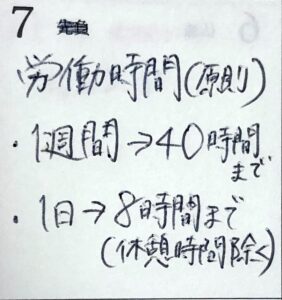 7 先負
労働時間(原則)
・1週間→40時間
まで
・1日→8時間まで
(休憩時間除く)